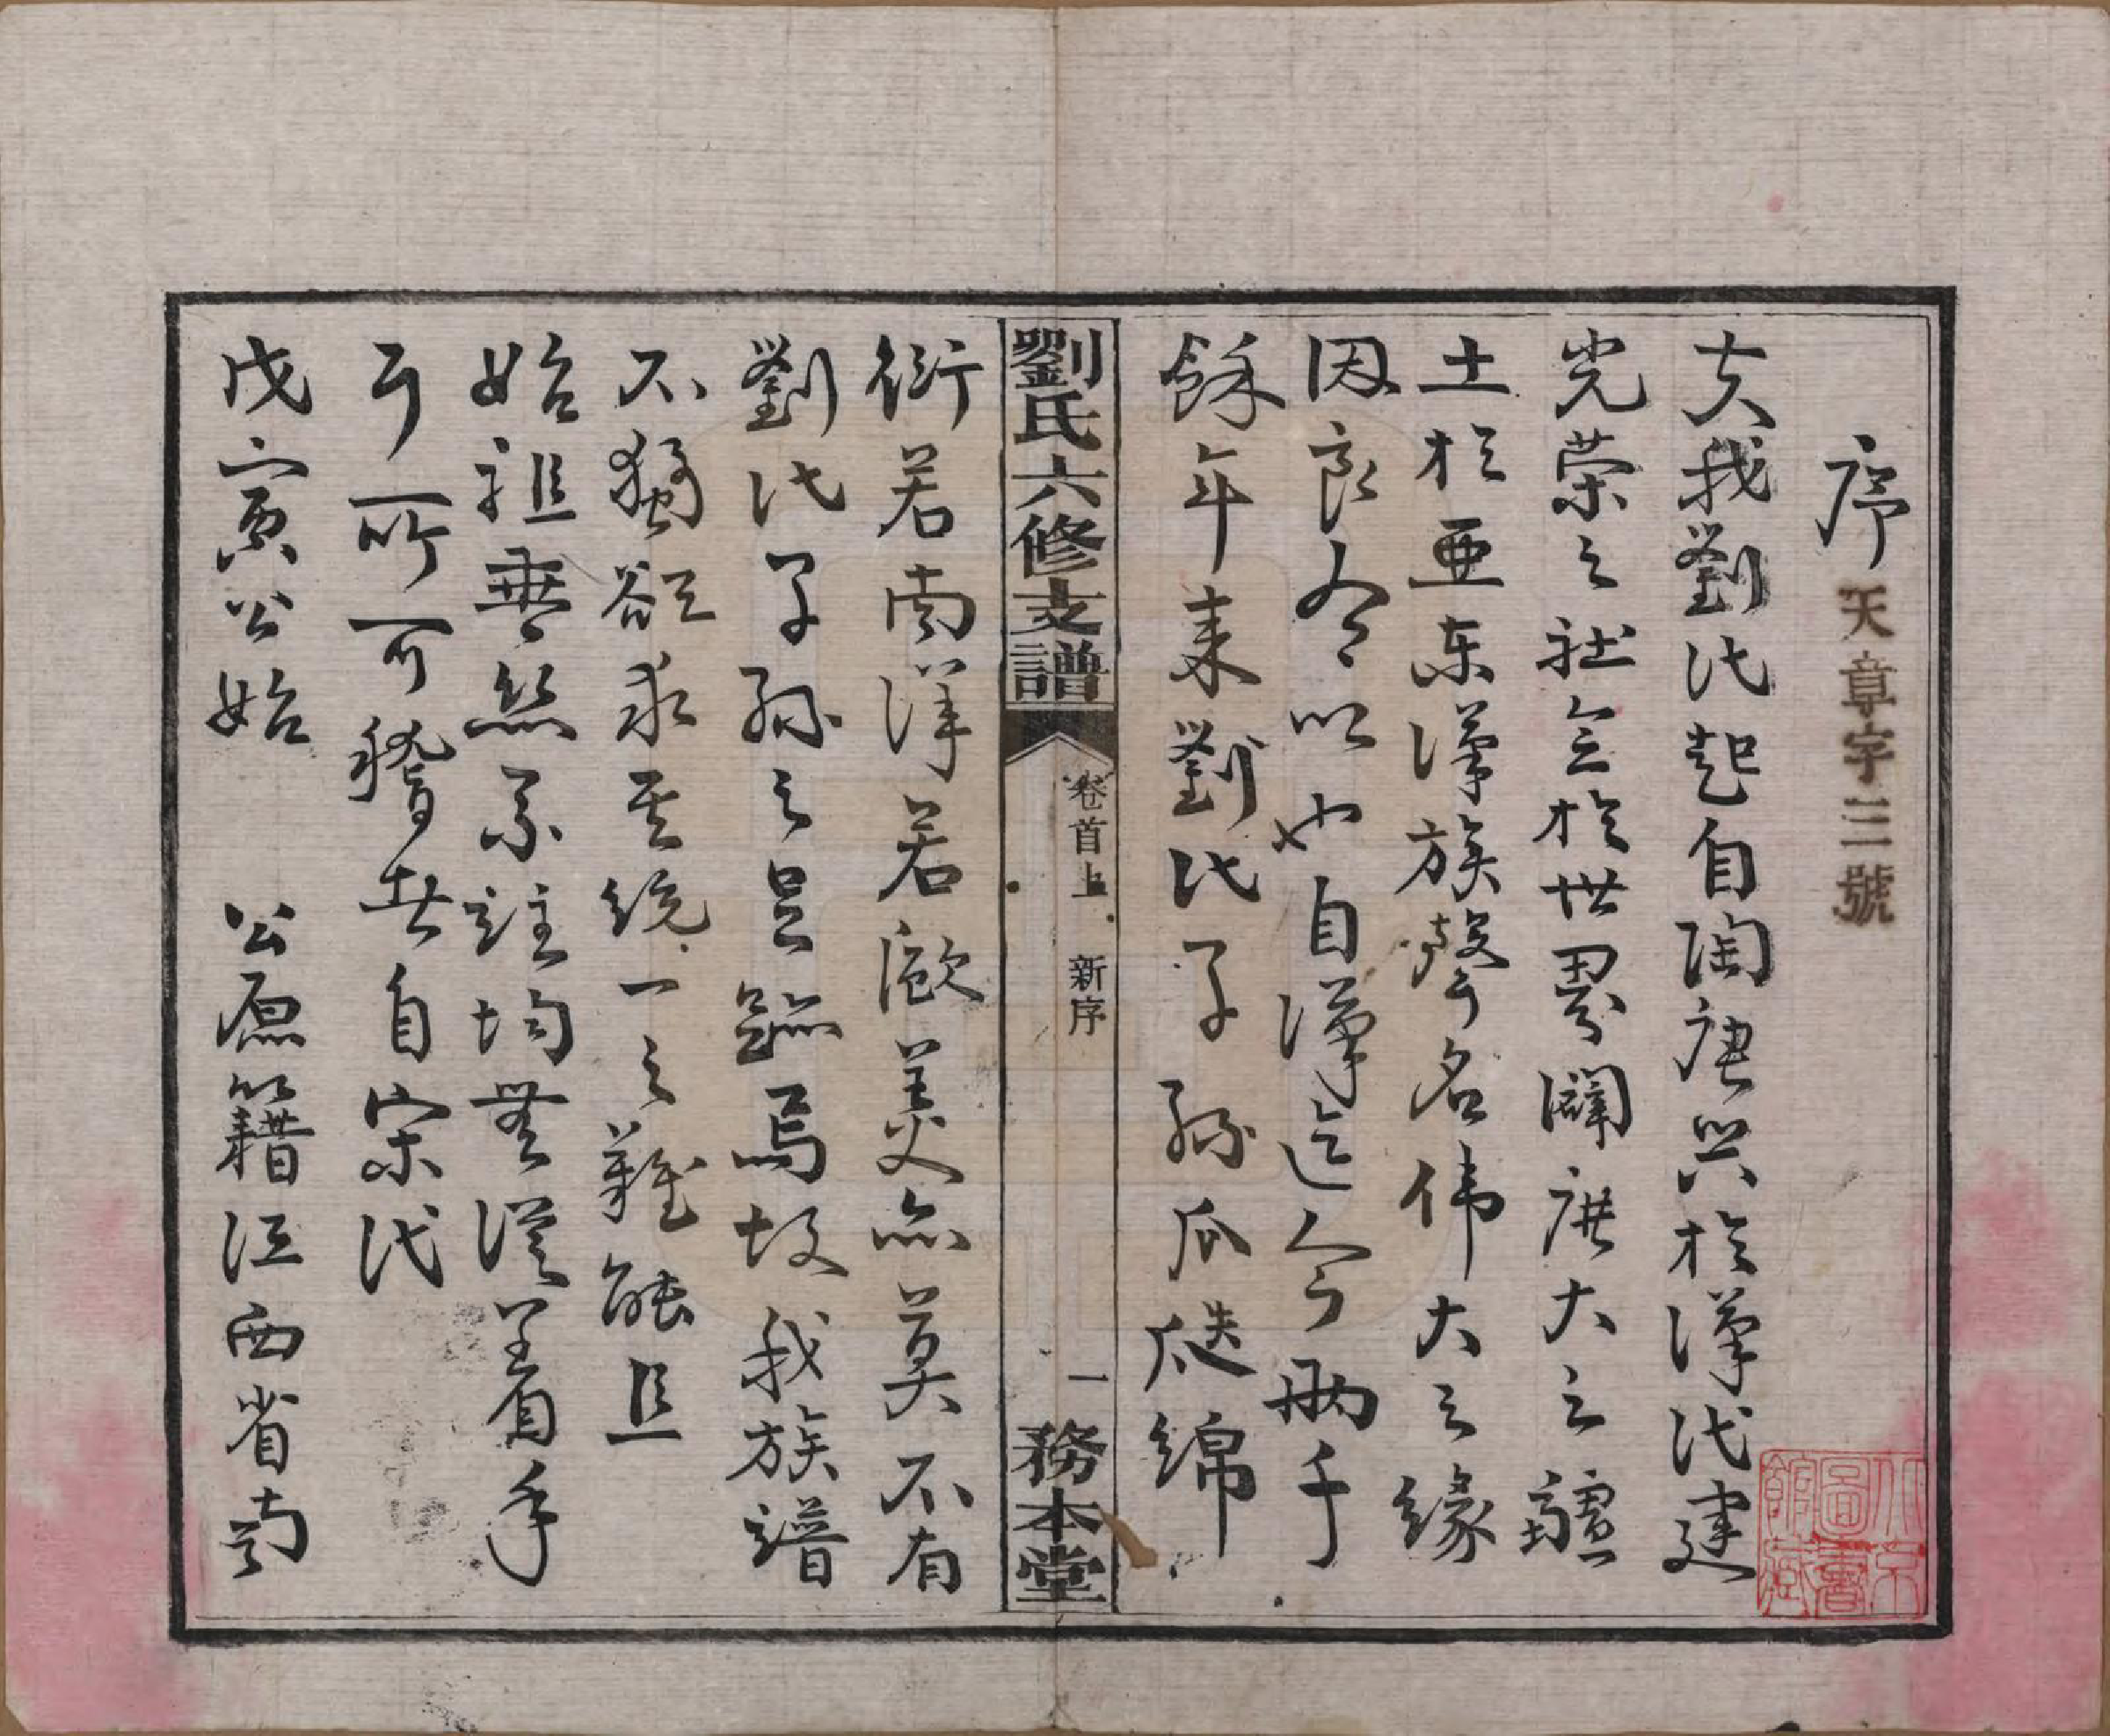 序
天章字三號
夫我劉氏起自陶唐興於漢代建
光榮之社会於世界闢廣大之疆
土於亜东漢族聲名偉大之緣
因良有以也自漢迄今兩千
餘年来劉氏子孫瓜瓞綿
劉氏六修支譜
卷首上 新序
一
務本堂
衍若南洋若歐美亦莫不有
劉氏子孫之足跡焉故我族譜
不獨欲求其統一之難能且
始祖垂然系註均無從著手
了所可稽者自宋代
戊寅公始 公原籍江西省
北京圖書館藏